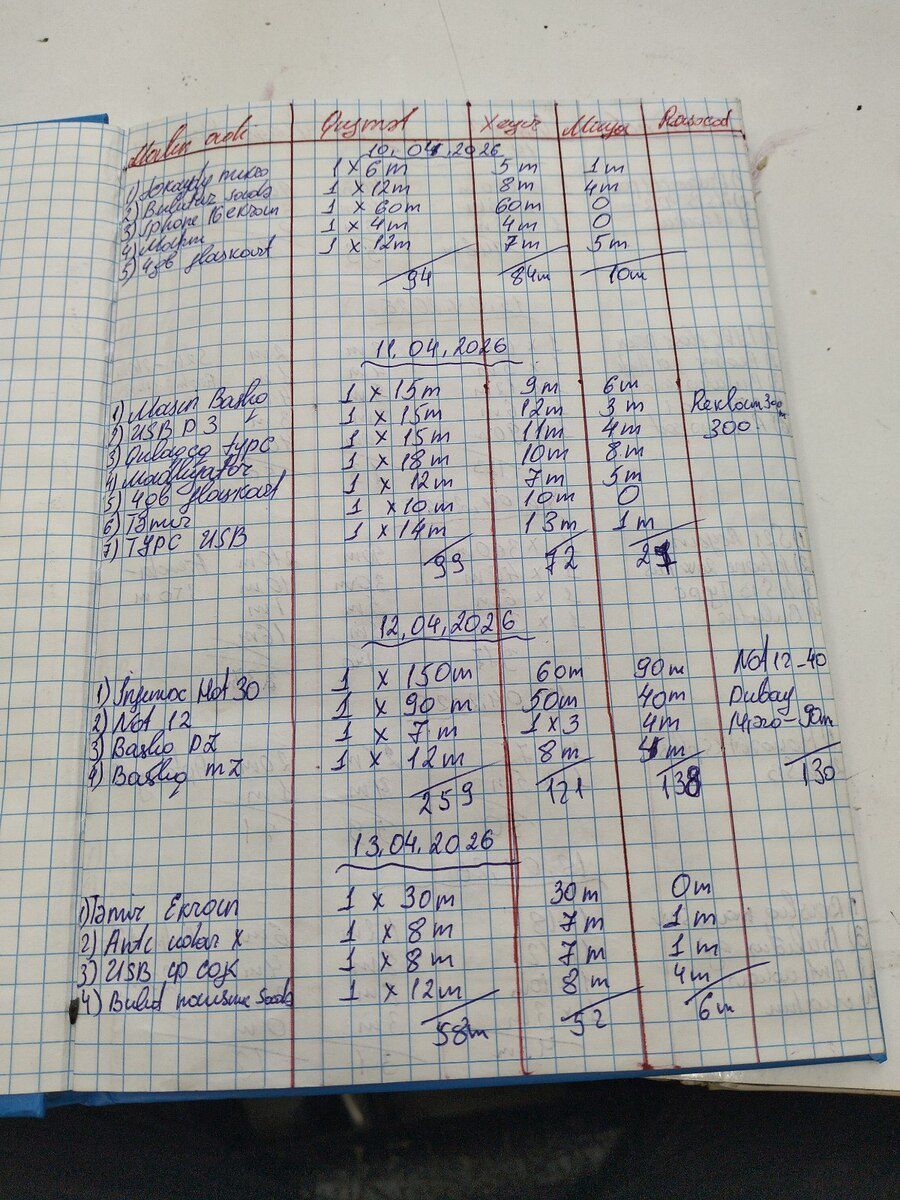 Malın adı Qiymət Xeyir Maya Rasxod
10.04.2026
1) 1 x 6m 5m 1m
2) 1 x 12m 8m 4m
3) Iphone 16 ekran 1 x 60m 60m 0
4) 1 x 4m 4m 0
5) 4gb flaşkart 1 x 12m 7m 5m
94 84m 10m
11.04.2026
1) Maşın Başlıq 1 x 15m 9m 6m
2) USB P3 1 x 15m 12m 3m
3) TYPC 1 x 15m 11m 4m
4) Madilyator 1 x 18m 10m 8m
5) 4gb flaşkart 1 x 12m 7m 5m
6) Təmir 1 x 10m 10m 0
7) TYPC USB 1 x 14m 13m 1m
99 72 27
Reklam 300m
300
12.04.2026
1) Hot 30 1 x 150m 60m 90m Not 12-40
2) Not 12 1 x 90m 50m 40m Dubay
3) Başlıq 1 x 7m 1x3 4m 90m
4) Başlıq 1 x 12m 8m 4m
259 121 138 130
13.04.2026
1) Təmir Ekran 1 x 30m 30m 0m
2) X 1 x 8m 7m 1m
3) USB 1 x 8m 7m 1m
4) 1 x 12m 8m 4m
58m 52 6m